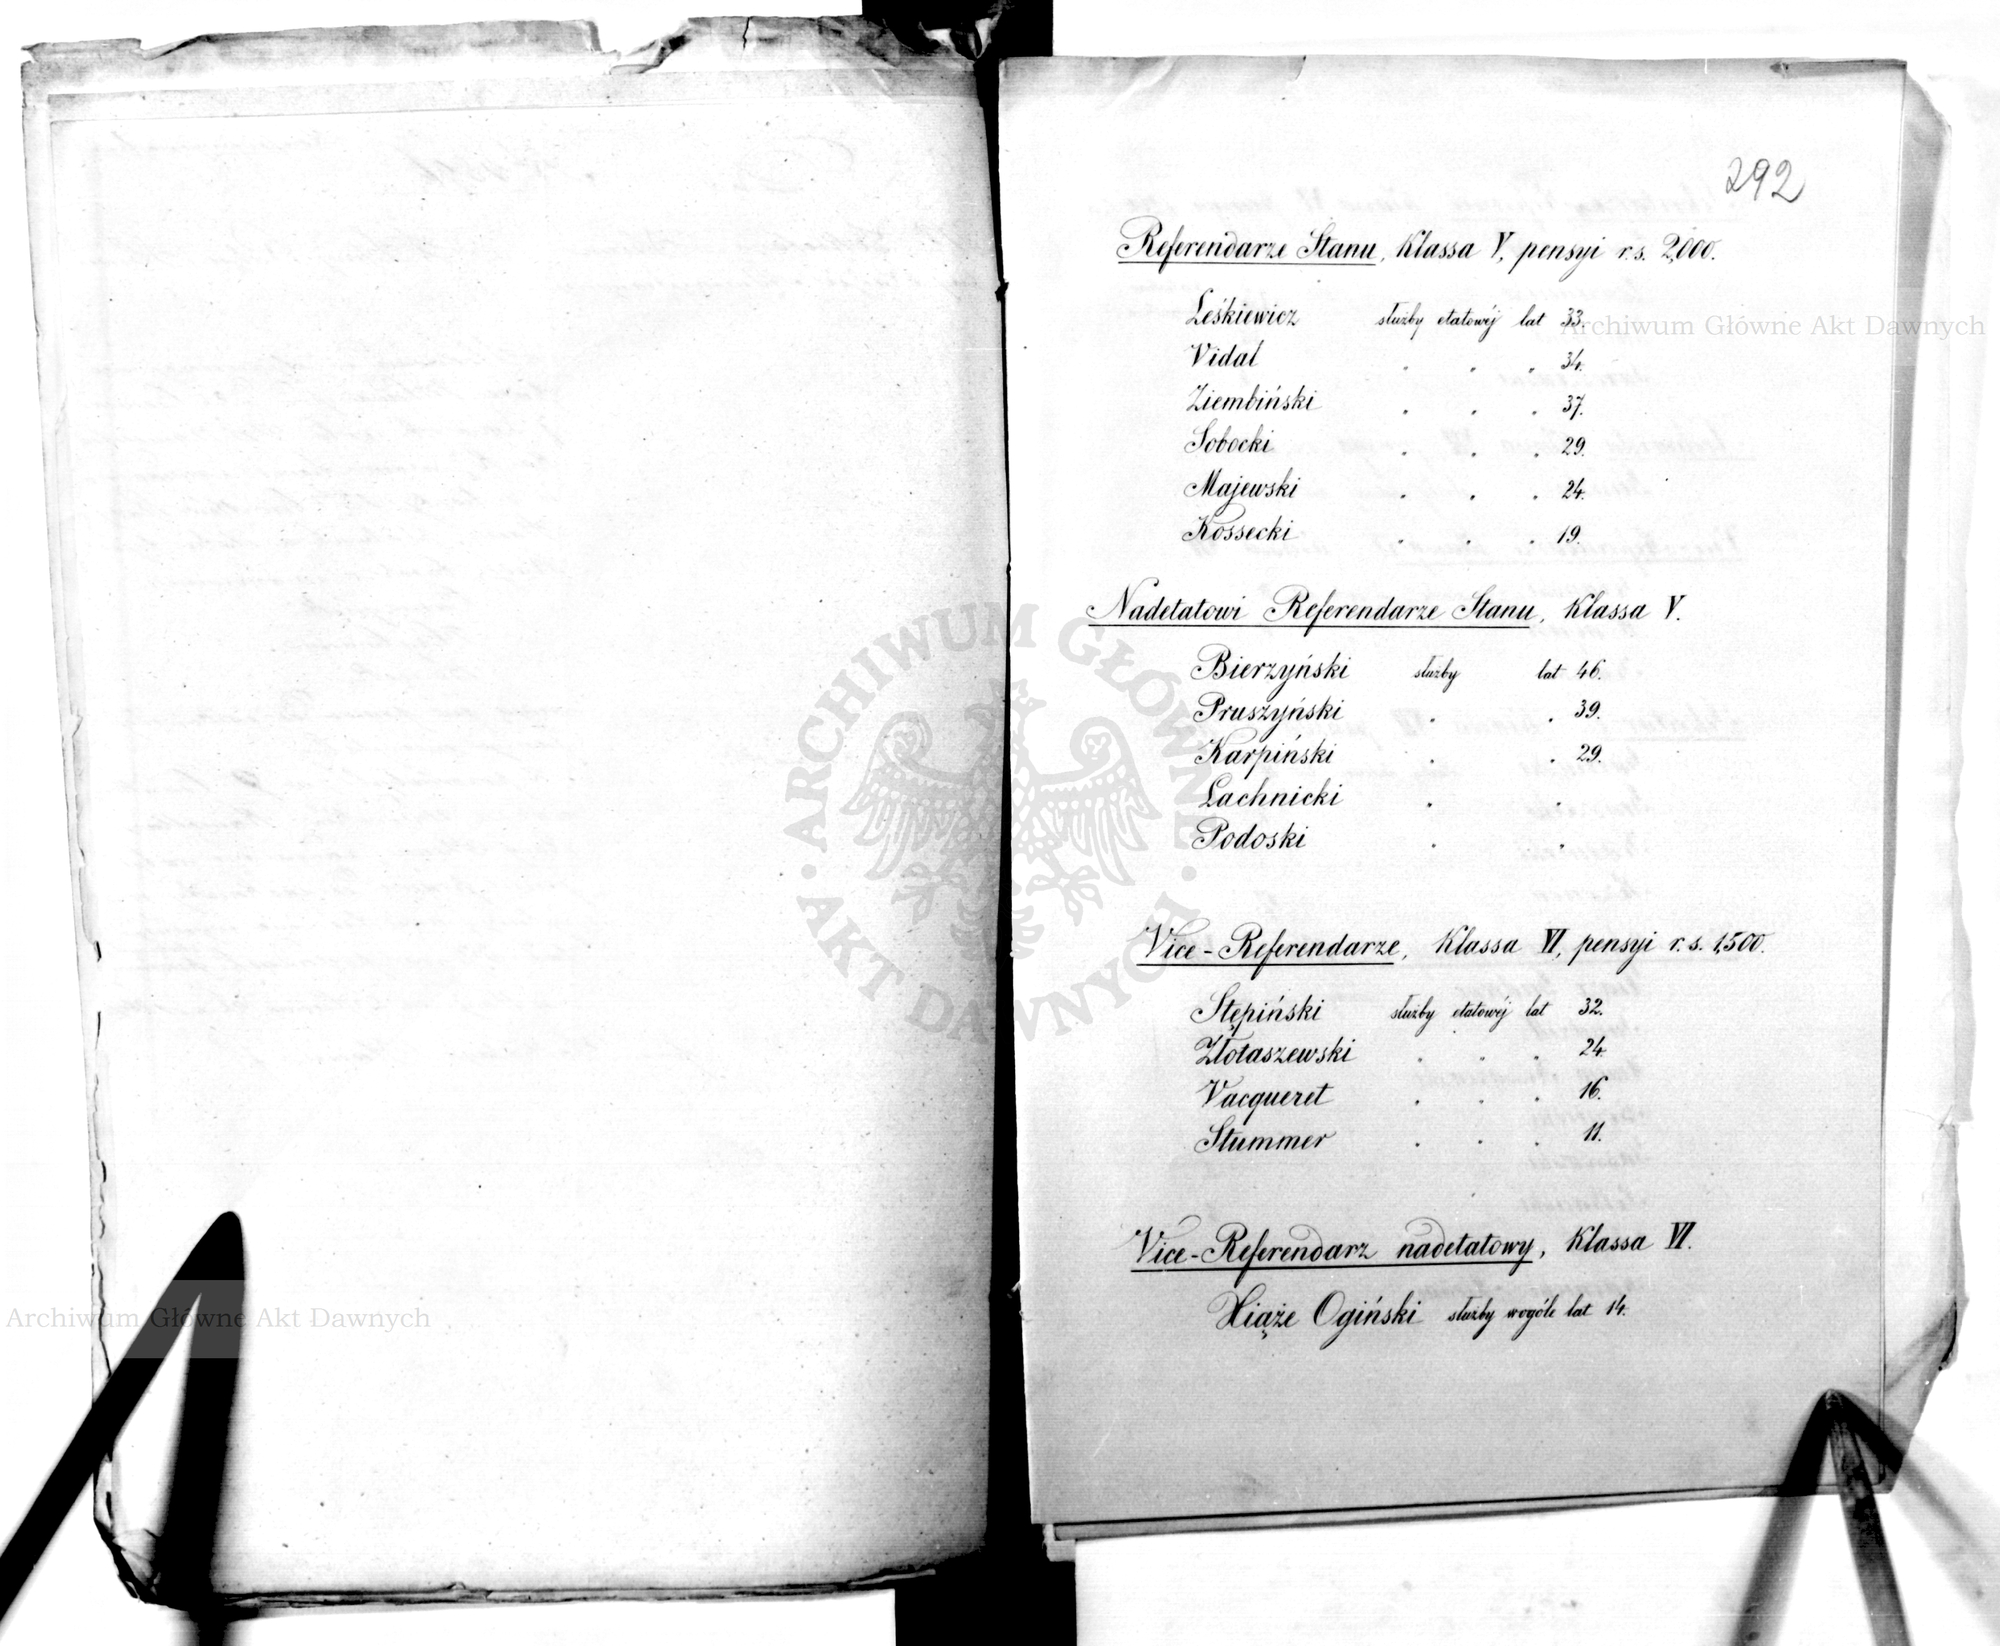 292
Referendarze Stanu, Klassa V, pensyi r. s. 2,000.
Leśkiewicz służby etatowéj lat 33.
Vidal " " " 34.
Ziembiński " " " 37.
Sobocki " " " 29.
Majewski " " " 24.
Kossecki " " " 19.
Nadetatowi Referendarze Stanu, Klassa V.
Bierzyński służby lat 46.
Pruszyński " " 39.
Karpiński " " 29.
Lachnicki " "
Podoski " "
Vice-Referendarze, Klassa VI, pensyi r. s. 1,500.
Stępiński służby etatowéj lat 32.
Złotaszewski " " " 24.
Vacqueret " " " 16.
Stummer " " " 11.
Vice-Referendarz nadetatowy, Klassa VI.
Xiąże Ogiński służby wogóle lat 14.
Archiwum Główne Akt Dawnych
ARCHIWUM GŁÓWNE · AKT DAWNYCH ·
Archiwum Główne Akt Dawnych